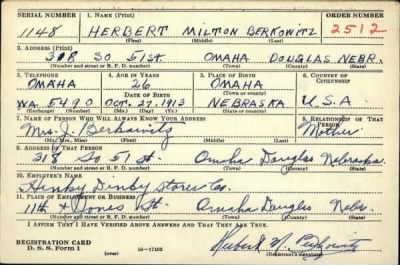 SERIAL NUMBER 1. NAME (Print) ORDER NUMBER
1148 HERBERT MILTON BERKOWITZ 2512
(First) (Middle) (Last)
2. ADDRESS (Print)
318 SO 51ST. OMAHA DOUGLAS NEBR.
(Number and street or R. F. D. number) (Town) (County) (State)
3. TELEPHONE 4. AGE IN YEARS 5. PLACE OF BIRTH 6. COUNTRY OF CITIZENSHIP
OMAHA 26 OMAHA
DATE OF BIRTH (Town or county)
WA. 5490 OCT. 27. 1913 NEBRASKA U.S.A.
(Exchange) (Number) (Mo.) (Day) (Yr.) (State or country)
7. NAME OF PERSON WHO WILL ALWAYS KNOW YOUR ADDRESS 8. RELATIONSHIP OF THAT PERSON
Mrs. J. Berkowitz Mother
(Mr., Mrs., Miss) (First) (Middle) (Last)
9. ADDRESS OF THAT PERSON
318 So 51 St. Omaha Douglas Nebraska
(Number and street or R. F. D. number) (Town) (County) (State)
10. EMPLOYER'S NAME
Hinky Dinky Stores Co.
11. PLACE OF EMPLOYMENT OR BUSINESS
11th & Jones St Omaha Douglas Nebr.
(Number and street or R. F. D. number) (Town) (County) (State)
I AFFIRM THAT I HAVE VERIFIED ABOVE ANSWERS AND THAT THEY ARE TRUE.
REGISTRATION CARD
D. S. S. Form 1 (over) 16—17105 Herbert M. Berkowitz
(Registrant's signature)